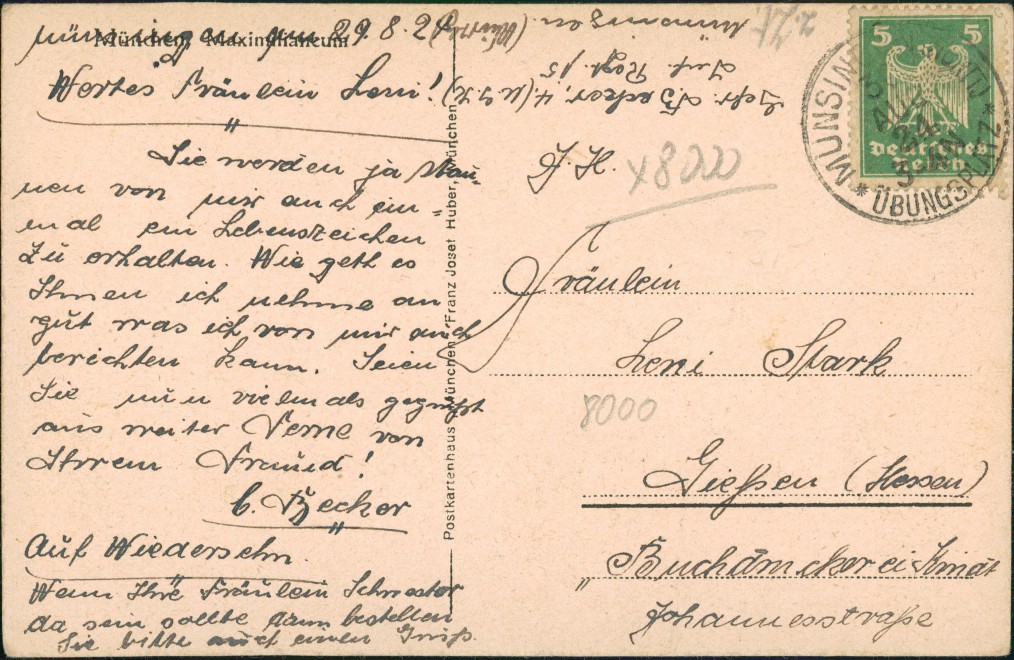 Münsingen, den 29.8.24
München Maximilianeum
Wertes Fräulein Leni!
Sie werden ja stau-
nen von mir auch ein-
mal ein Lebenszeichen
zu erhalten. Wie geht es
Ihnen ich nehme an
gut was ich von mir auch
berichten kann. Seien
Sie nun vielmals gegrüßt
aus weiter Ferne von
Ihrem Freund!
C. Becker
Auf Wiedersehn.
Wenn Ihre Fräulein Schwester
da sein sollte dann bestellen
Sie bitte auch einen Gruß.
Postkartenhaus München Franz Josef Huber, München
Münsingen (Württ.)
Inf. Regt. 15
Becker, 4.
X8000
5 5
Deutsches Reich
MÜNSINGEN
ÜBUNGSPLATZ
Fräulein
Leni Stark
8000
Gießen (Hessen)
Buchdruckerei
Johannesstraße